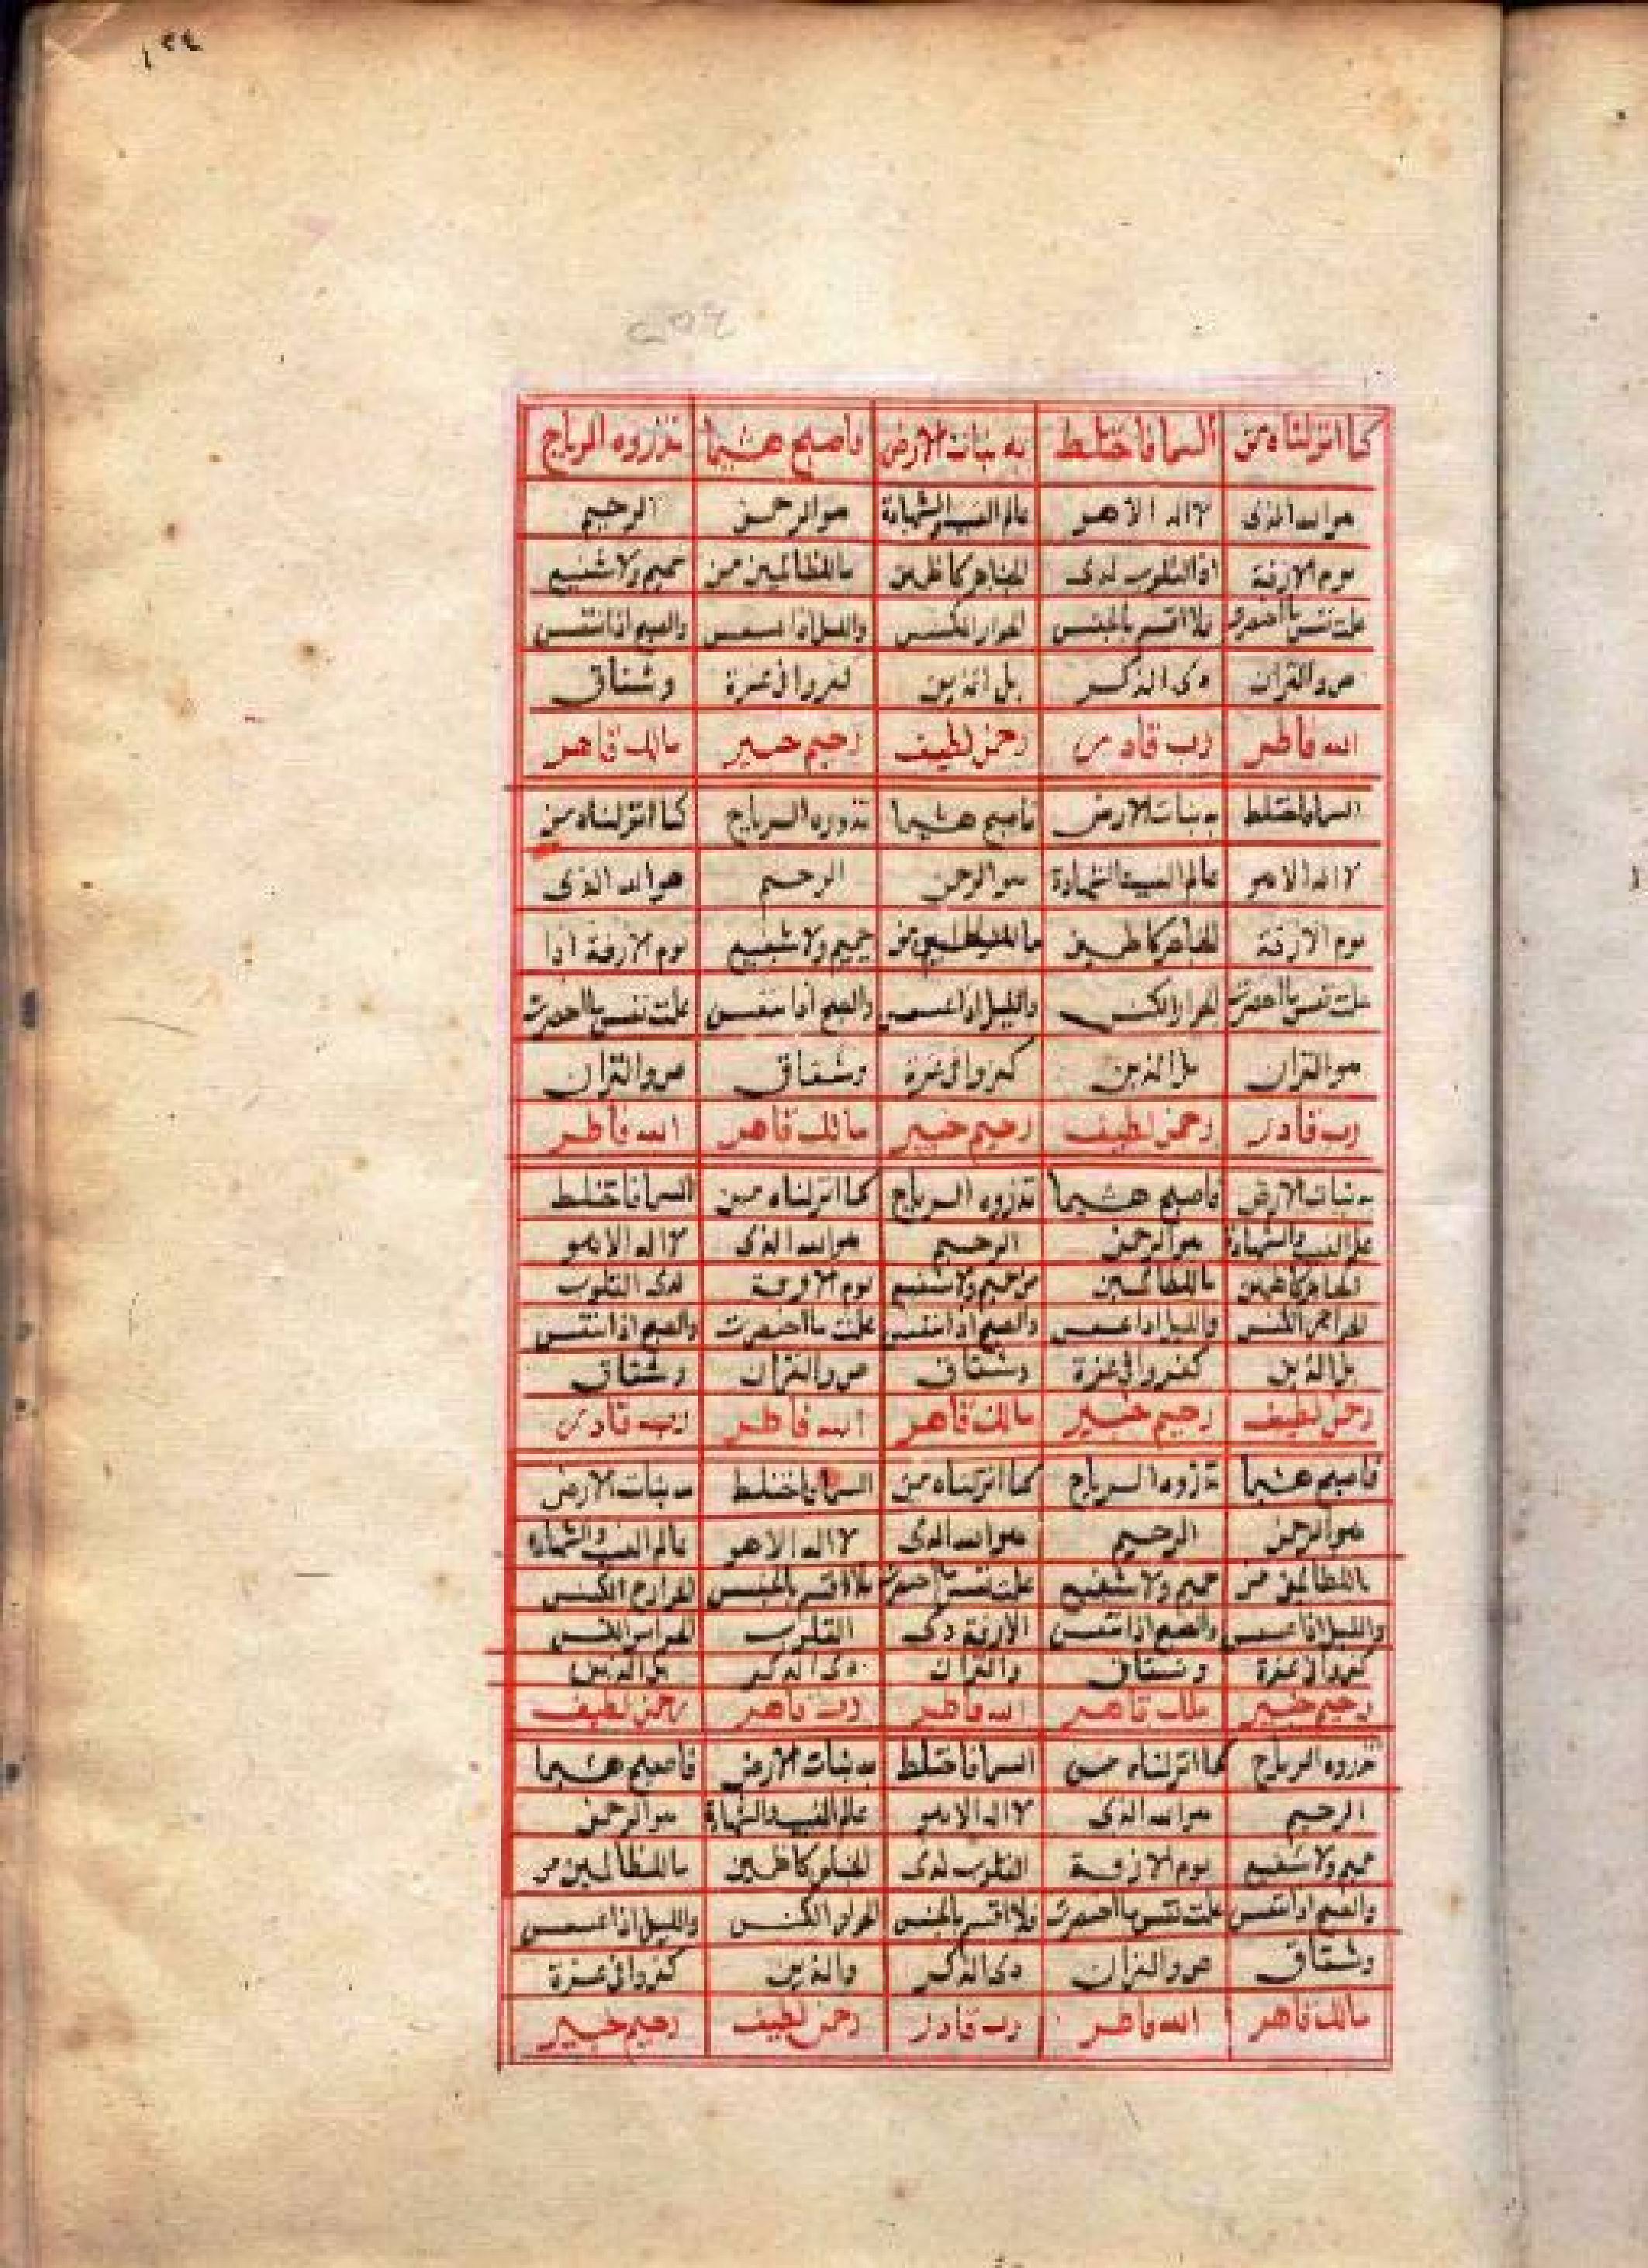 ١٣٤
كما انزلناه من السما فاختلط به نبات الارض فاصبح هشيما تذروه الرياح
هو الله الذى لا اله الا هو عالم الغيب والشهادة هو الرحمن الرحيم
يوم الازفة اذ القلوب لدى الحناجر كاظمين ما للظالمين من حميم ولا شفيع
علمت نفس ما احضرت فلا اقسم بالخنس الجوار الكنس والليل اذا عسعس والصبح اذا تنفس
ص والقران ذى الذكر بل الذين كفروا فى عزة وشقاق
الله فاطر رب قادر رحمن لطيف رحيم خبير مالك قاهر
السما فاختلط به نبات الارض فاصبح هشيما تذروه الرياح كما انزلناه من
لا اله الا هو عالم الغيب والشهادة هو الرحمن الرحيم هو الله الذى
يوم الازفة الحناجر كاظمين من حميم ولا شفيع يوم الازفة اذا
علمت نفس ما احضرت الجوار الكنس والليل اذا عسعس والصبح اذا تنفس علمت نفس ما احضرت
القران بل الذين كفروا فى عزة وشقاق ص والقران
رب قادر رحمن لطيف رحيم خبير مالك قاهر الله فاطر
به نبات الارض فاصبح هشيما تذروه الرياح كما انزلناه من السما فاختلط
عالم الغيب والشهادة هو الرحمن الرحيم هو الله الذى لا اله الا هو
الحناجر كاظمين ما للظالمين من حميم ولا شفيع يوم الازفة لدى القلوب
الكنس والليل اذا عسعس والصبح اذا تنفس علمت ما احضرت والصبح اذا تنفس
بل الذين كفروا فى عزة وشقاق ص والقران وشقاق
رحمن لطيف رحيم خبير مالك قاهر الله فاطر رب قادر
فاصبح هشيما تذروه الرياح كما انزلناه من السما فاختلط به نبات الارض
هو الرحمن الرحيم هو الله الذى لا اله الا هو عالم الغيب والشهادة
ما للظالمين من حميم ولا شفيع علمت نفس ما احضرت فلا اقسم بالخنس الكنس
والليل اذا عسعس والصبح اذا تنفس الازفة دى القلوب
كفروا فى عزة وشقاق والقران ذى الذكر بل الذين
رحيم خبير ملك قاهر الله فاطر رب قاهر رحمن لطيف
تذروه الرياح كما انزلناه من السما فاختلط به نبات الارض فاصبح هشيما
الرحيم هو الله الذى لا اله الا هو عالم الغيب والشهادة هو الرحمن
حميم ولا شفيع يوم الازفة القلوب لدى الحناجر كاظمين ما للظالمين من
والصبح اذا تنفس علمت نفس ما احضرت فلا اقسم بالخنس الجوار الكنس والليل اذا عسعس
وشقاق ص والقران ذى الذكر والذين كفروا فى عزة
مالك قاهر الله فاطر رب قادر رحمن لطيف رحيم خبير